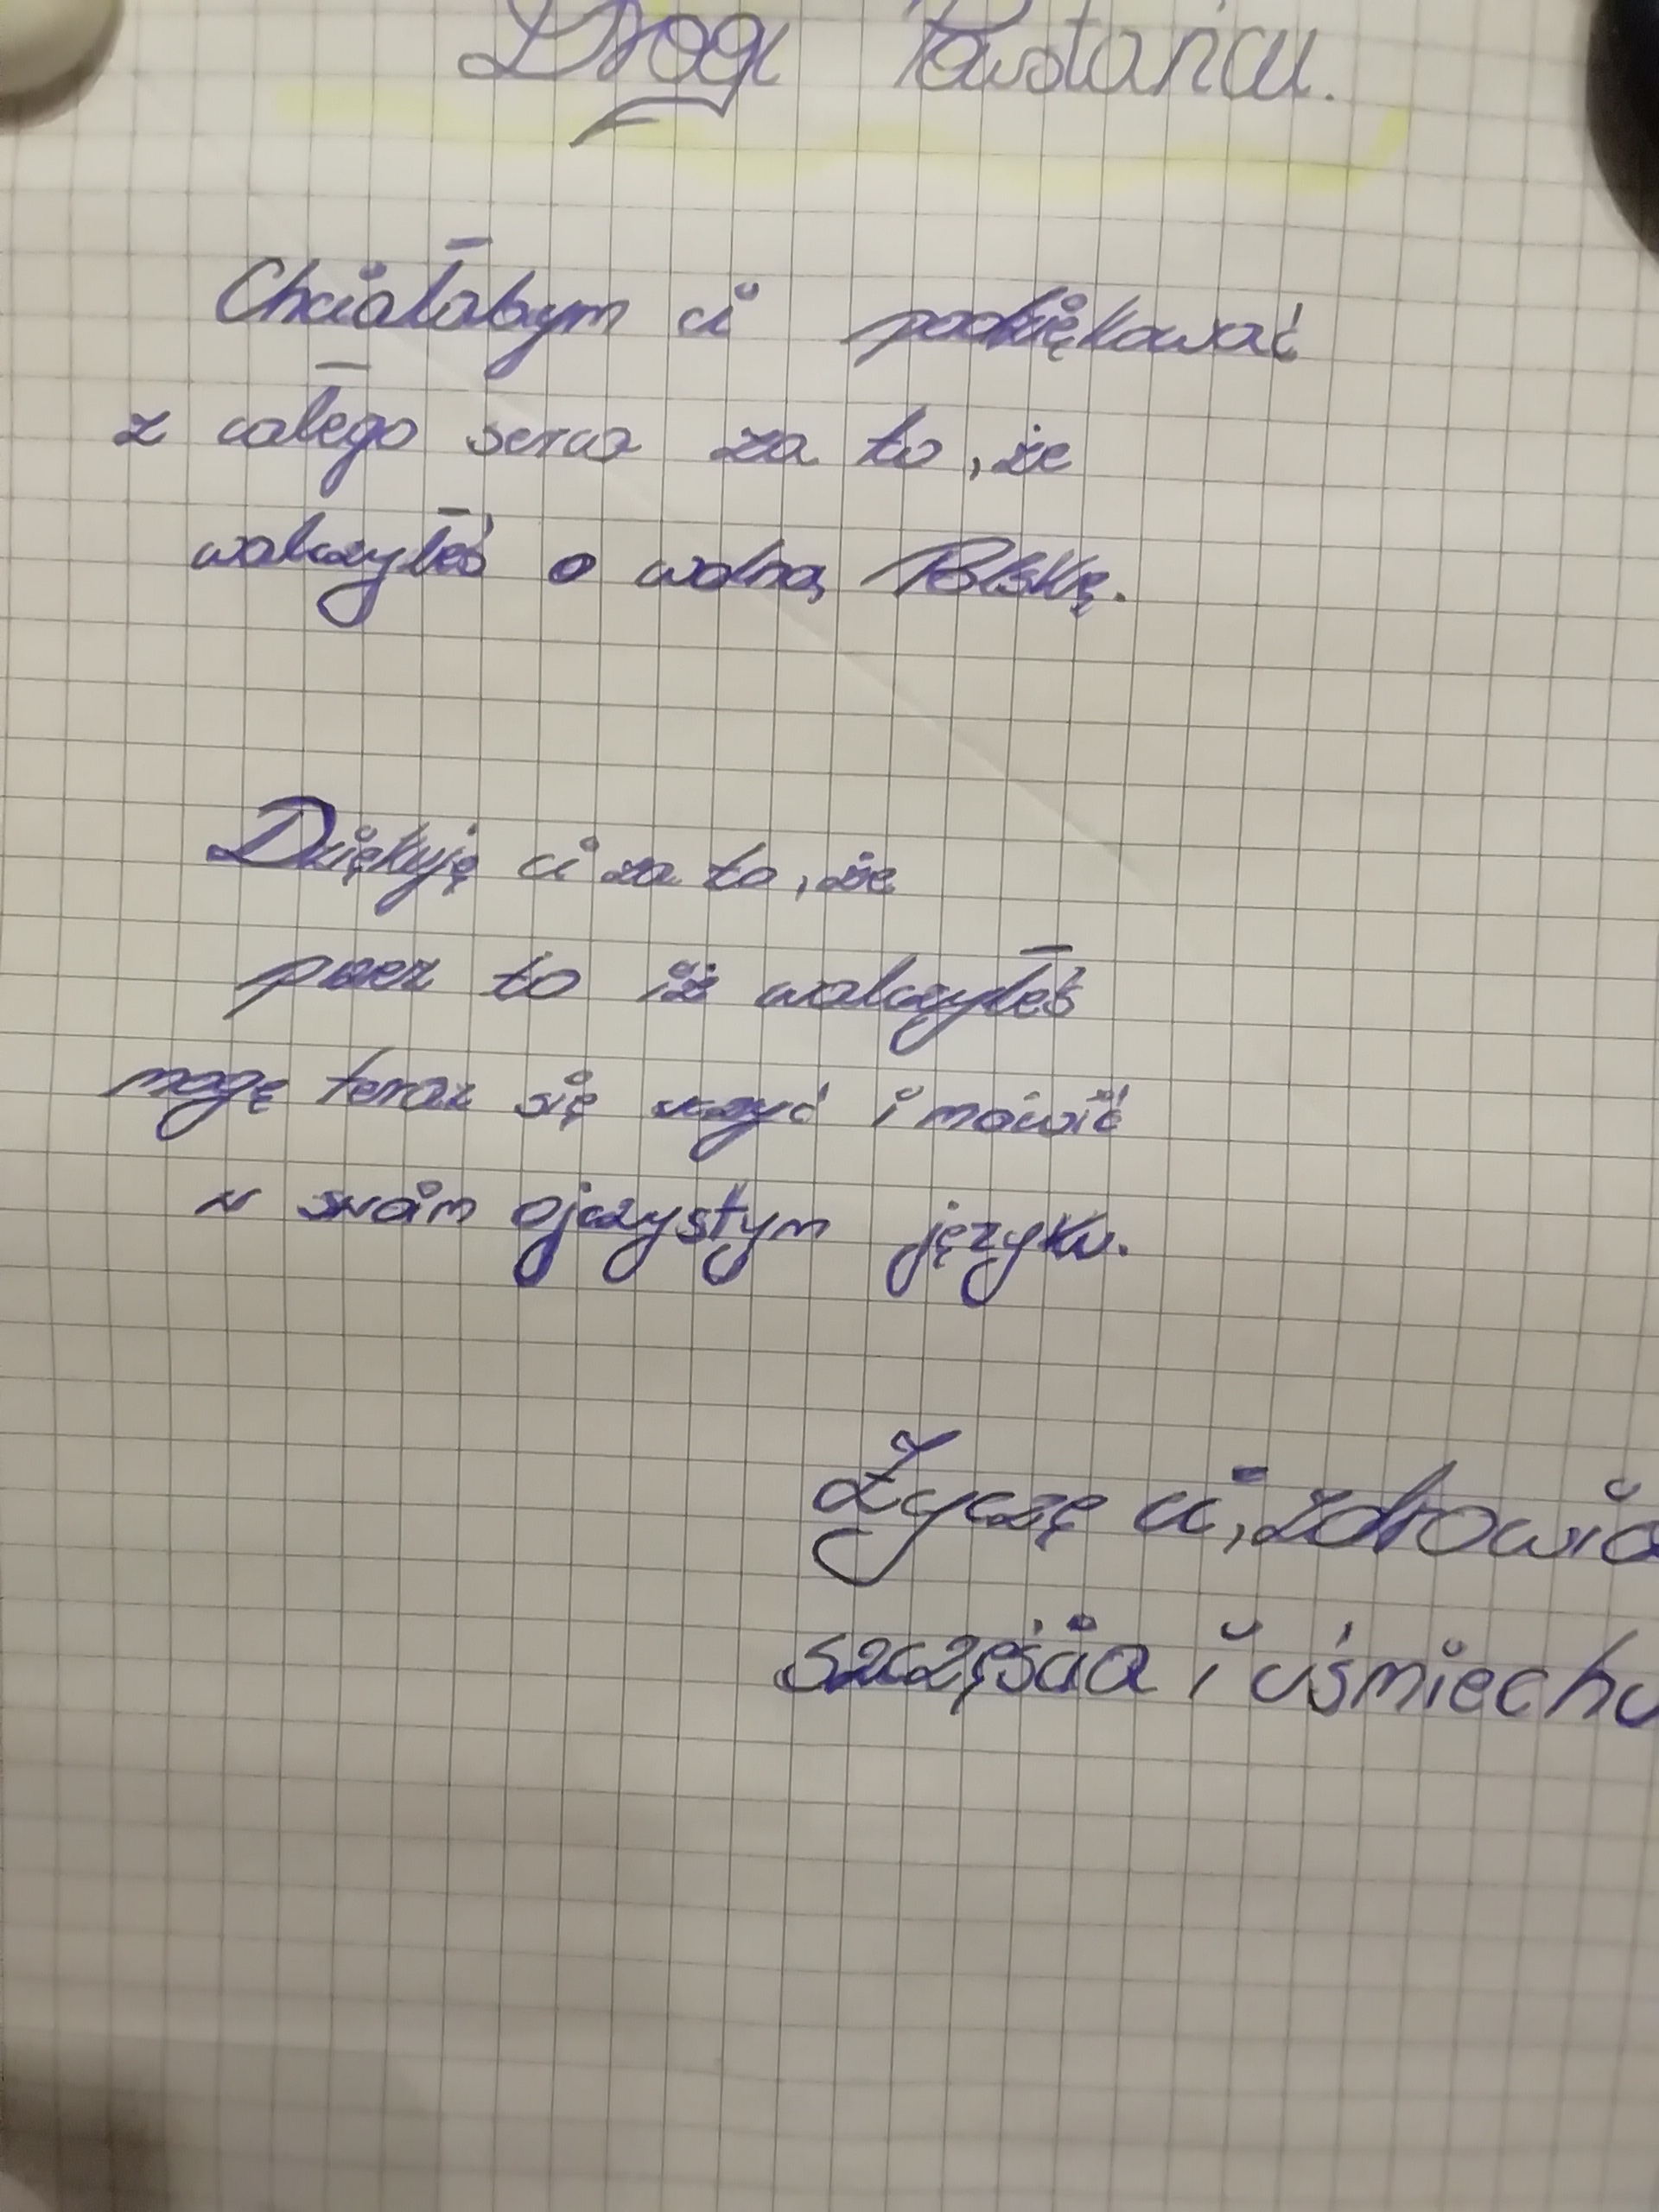 Drogi Powstańcu.
Chciałabym ci podziękować
z całego serca za to, że
walczyłeś o wolną Polskę.
Dziękuję ci za to, że
przez to iż walczyłeś
mogę teraz się uczyć i mówić
w swoim ojczystym języku.
Życzę ci, zdrowia
szczęścia i uśmiechu